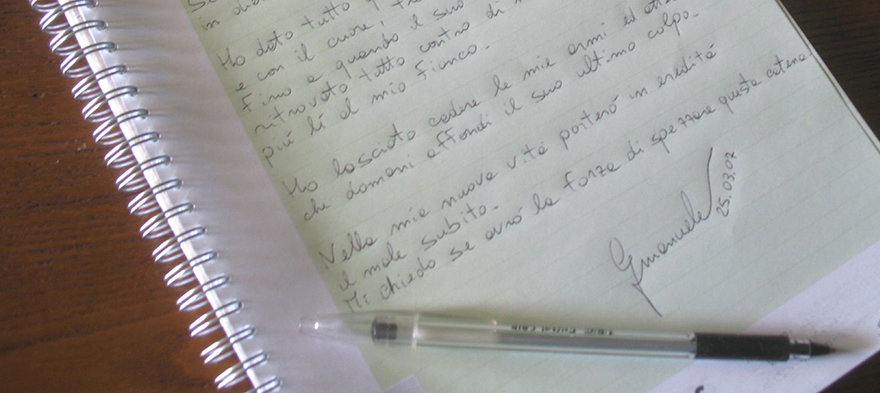 in
Ho dato tutto
e con il cuore,
Fino a quando il suo
ritrovato tutto contro di
più lì al mio fianco.
Ho lasciato cadere le mie armi ed
che domani affondi il suo ultimo colpo.
Nella mia nuova vita porterò in eredità
il male subito.
Mi chiedo se avrò la forza di spezzare questa catena
Emanuele
25.03.07